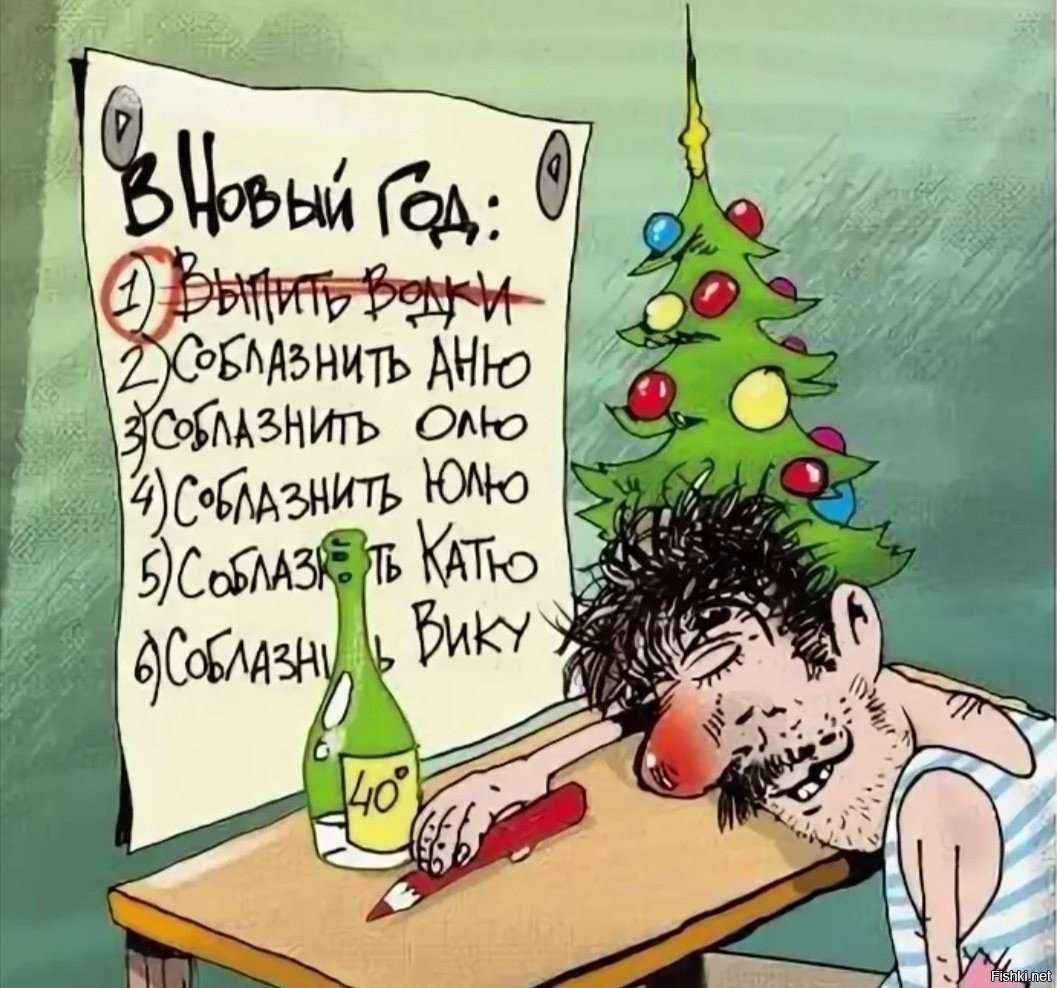 В Новый Год:
1) Выпить водки
2) Соблазнить Аню
3) Соблазнить Олю
4) Соблазнить Юлю
5) Соблазнить Катю
6) Соблазнить Вику
40°
Fishki.net